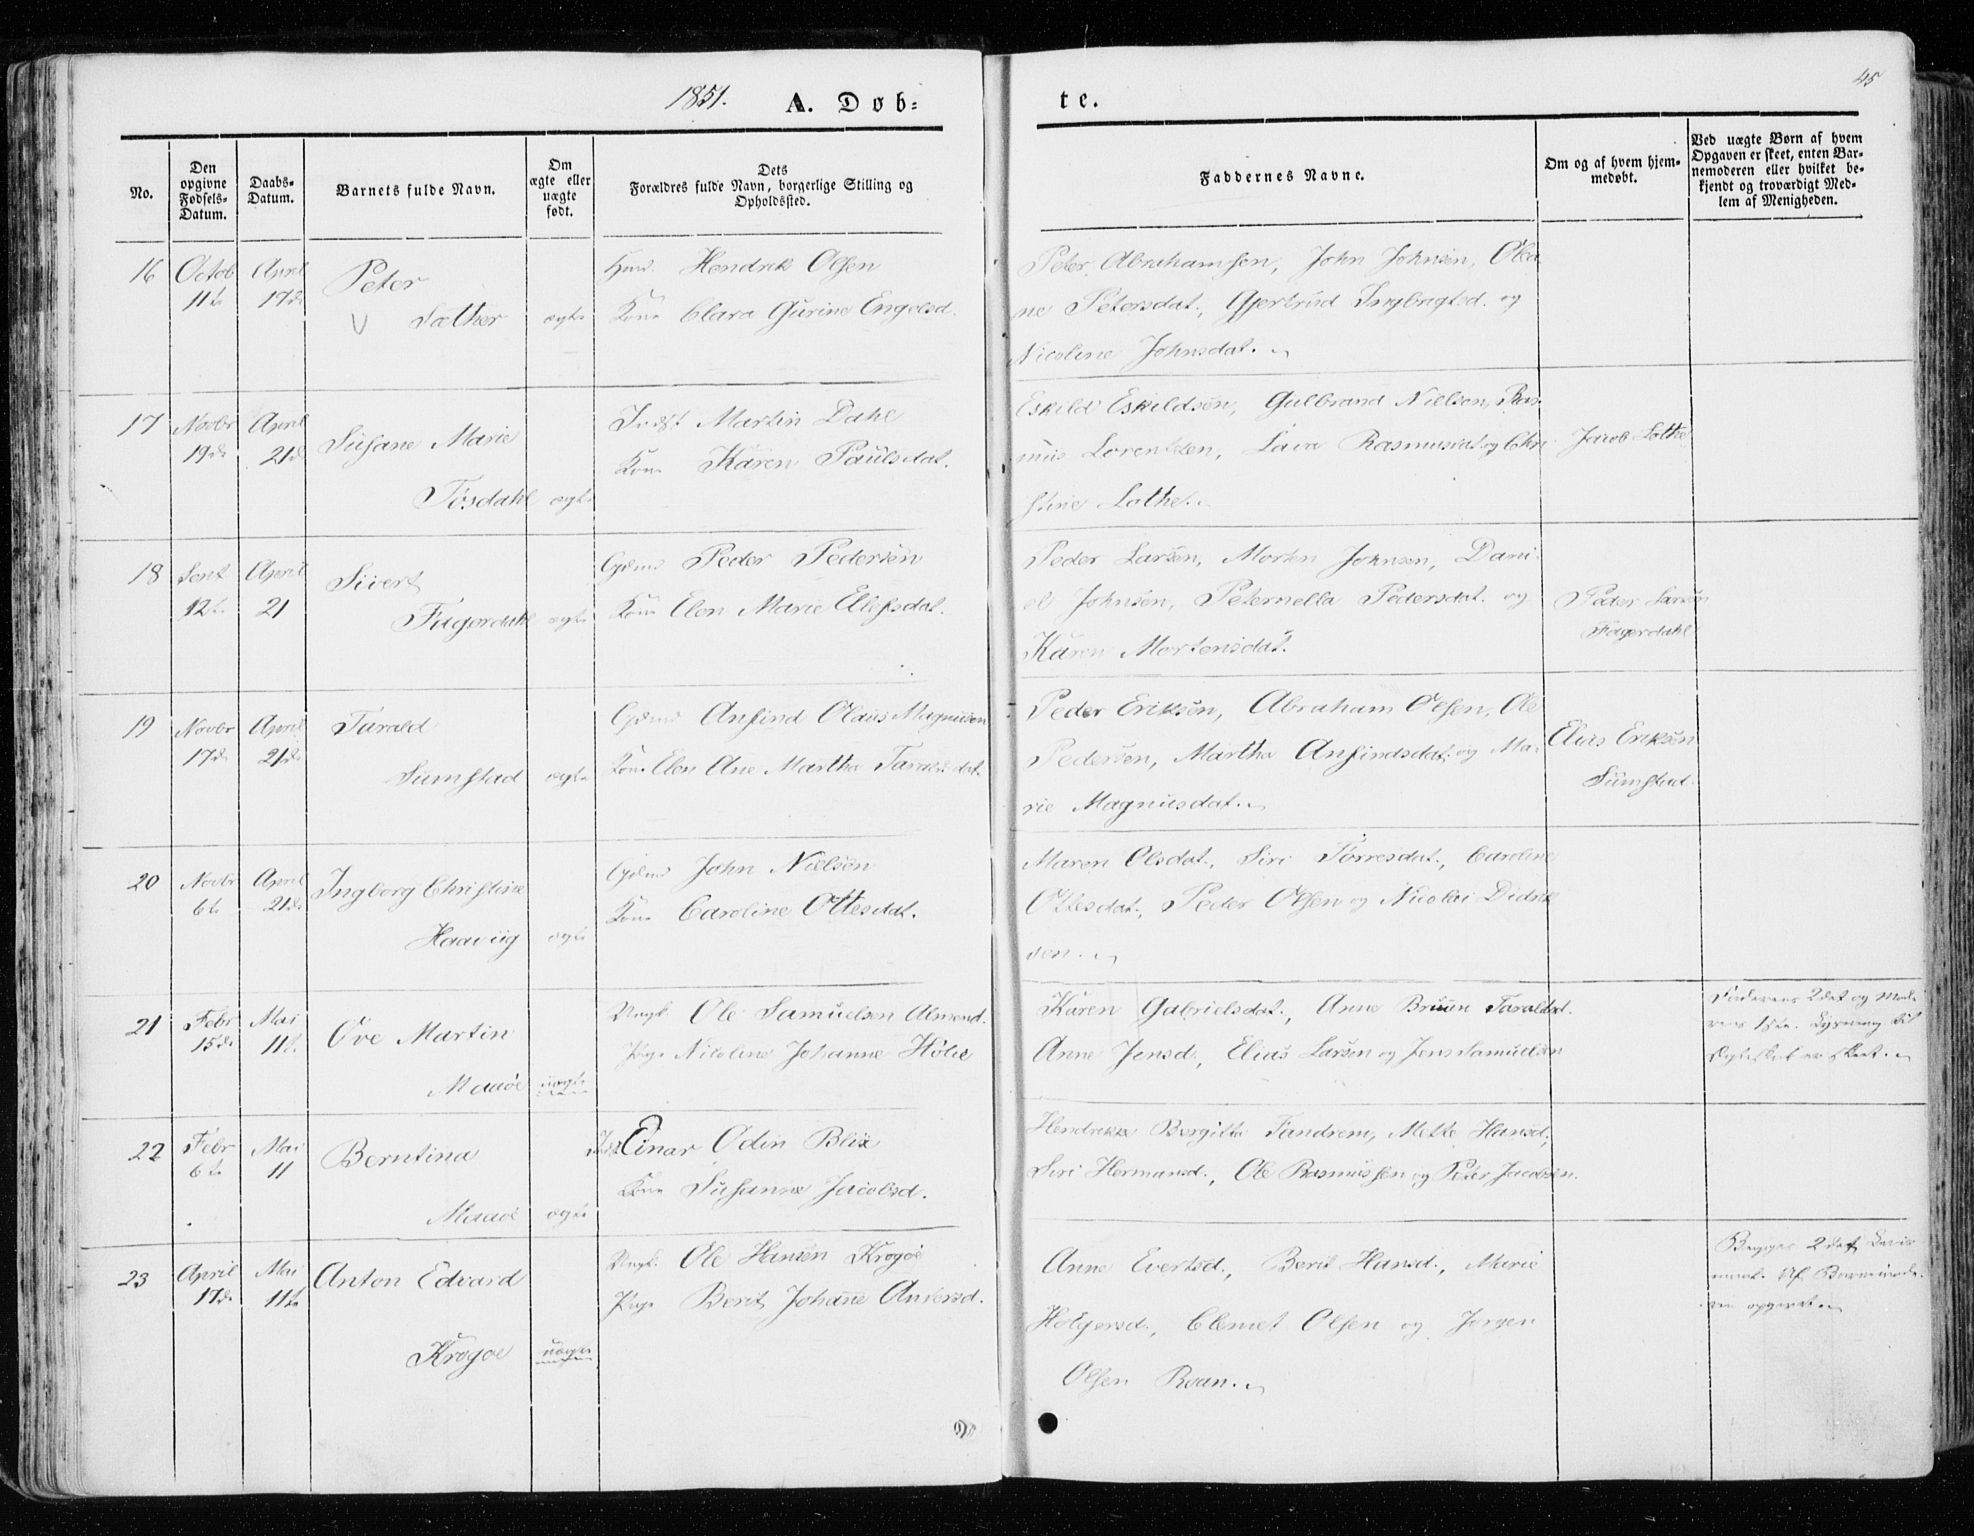 1851. A. Døb=
te.
45
No.
Den opgivne Fødsels-Datum.
Daabs-Datum.
Barnets fulde Navn.
Om ægte eller uægte født.
Dets Forældres fulde Navn, borgerlige Stilling og Opholdssted.
Faddernes Navne.
Om og af hvem hjem-
medøbt.
Ved uægte Børn af hvem
Opgaven er skeet, enten Bar-
nemoderen eller hvilket be-
kjendt og troværdigt Med-
lem af Menigheden.
16 Octob April
11te 17de
Peter
Sæther ægte
Hendrik Olsen
Kone Clara Gurine Engelsd.
Peter Abrahamsen, John Johnsen, Olea
ne Petersdat., Gjertrud Ingbrigtsd. og
Nicoline Johnsdat.
17 Novbr April
19de 21de
Susane Marie
Tøsdahl ægte
Indst Martin Dahl
Kone Karen Paulsdat.
Eskild Eskildsen, Gulbrand Nielsen, Ras
mus Lorentzen, Lava Rasmusdat og Chri
stine Lothe.
Jacob Lothe
18 Sept April
12te 21
Sivert
Fagerdahl ægte
Gdmd Peder Pedersen
Kone Elen Marie Ellefsdat.
Peder Larsen, Morten Johnsen, Dani-
el Johnsen, Peternella Pedersdat. og
Karen Mortensdat.
Peder Larsen
Fagerdahl
19 Novbr April
17de 21de
Tarald
Sumstad ægte
Gdmd Anfind Olaus Magnusen
Kone Elen Ane Martha Taraldsdat.
Peder Eriksen, Abraham Olsen, Ole
Pedersen, Martha Anfindsdat. og Ma-
rie Magnusdat.
Elias Eriksen
Sumstad.
20 Novbr April
6te 21de
Ingborg Christine
Haavig ægte
Gdmd John Nielsen
Kone Caroline Ottesdat.
Maren Olsdat., Siri Torresdat., Caroline
Ottesdat., Peder Olsen og Nicolai Didrik
sen.
21 Febr Mai
15de 11te
Ove Martin
Maaøe uægte
Ungk. Ole Samuelsen Almend.
Pige Nicoline Johanne Hölie
Karen Gabrielsdat., Anne Bruun Taraldsd.
Anne Jensd., Elias Larsen og Jens Samuelsen
Faderens 2det og Mode-
rens 1ste. Lysning til
Ægteskab er skeet.
22 Febr Mai
6te 11
Berntina
Maaøe ægte
Einar Odin Blix
Kone Susanne Jacobsd.
Hendrikke Bergitte Tandrem, Mette Hansd.,
Siri Hermansd., Ole Rasmussen og Peter Jacobsen.
23 April Mai
17de 11te
Anton Edvard
Krogøe uægte
Ungk. Ole Hansen Krogøe
Pige Berit Johanne Andersd.
Anne Evertsd., Berit Hansd., Marie
Holgersd., Clemet Olsen og Jørgen
Olsen Roan.
Begges 2det Leier-
maal. Af Barnemode-
ren opgivet